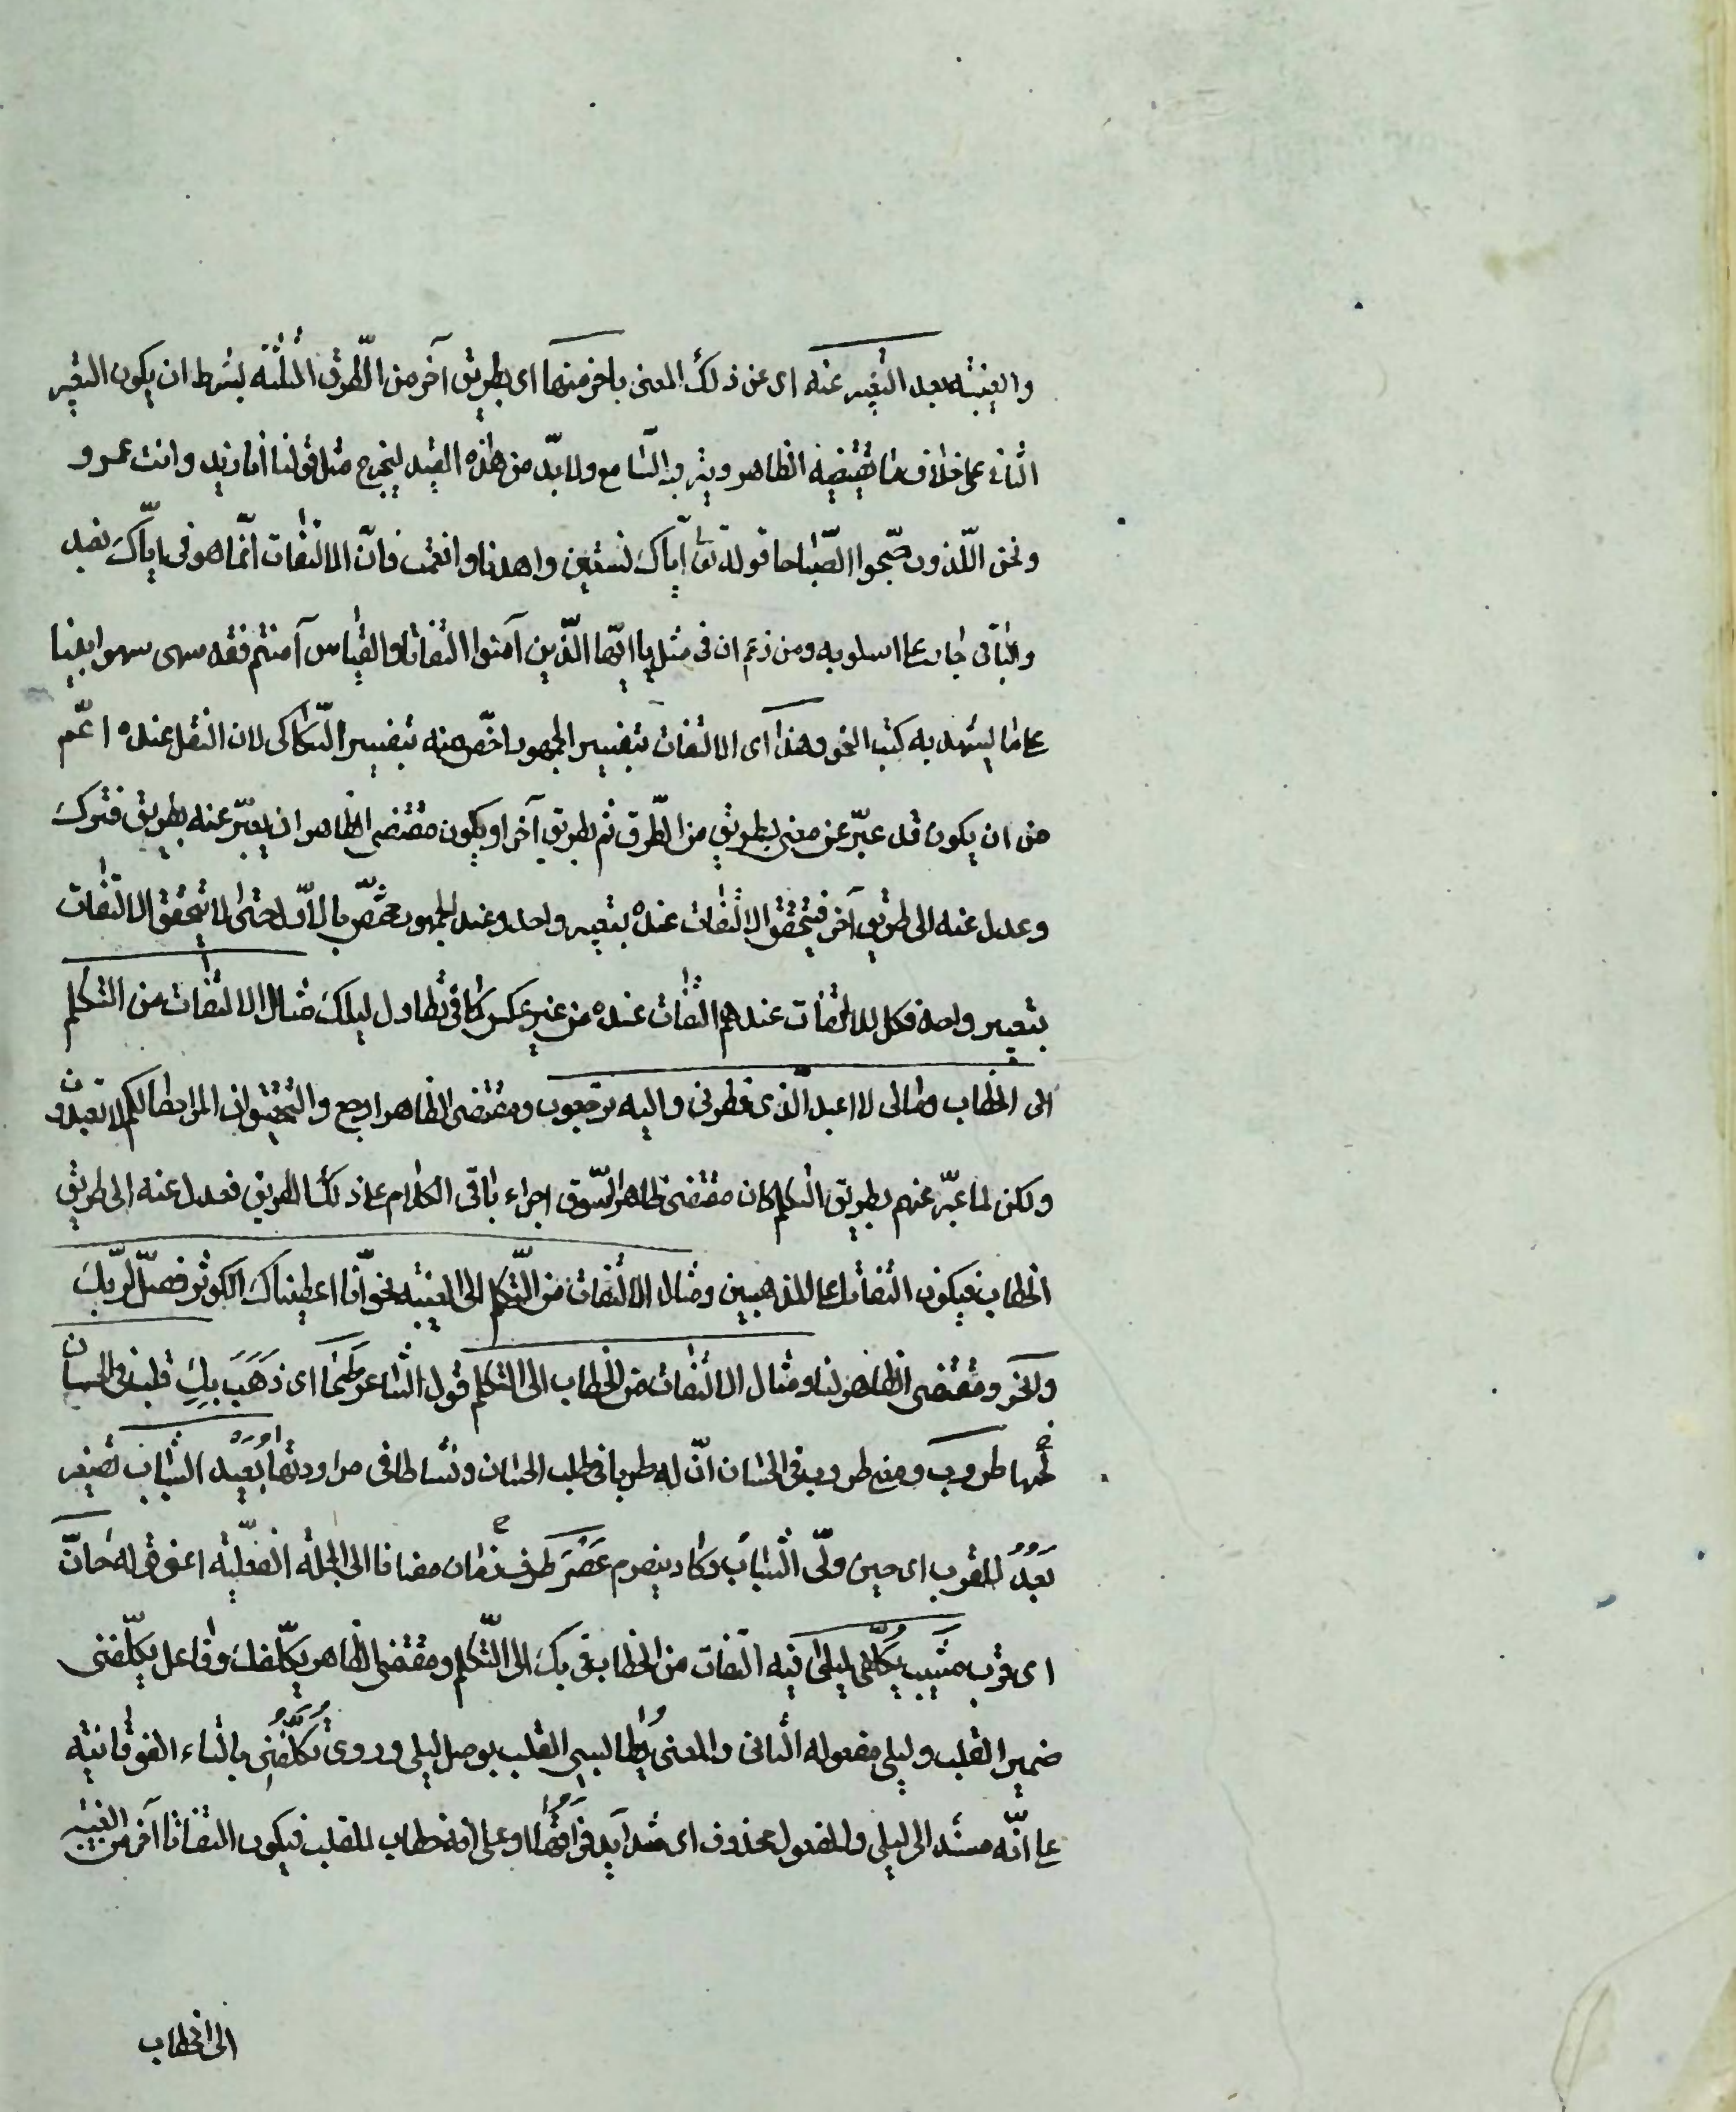 والغيبة بعد التعبير عنه اى عن ذلك المعنى باخر منها اى بطريق آخر من الطّرق الثلثة بشرط ان يكون التعبير
الثانى على خلاف ما يقتضيه الظاهر ويترقبه السّامع ولا بدّ من هذه القيد ليخرج مثل قولنا أنا زيد وانت عمرو
ونحن اللّذون صبّحوا الصّباحا قوله تعا ايّاك نستعين واهدنا وانعمت فانّ الالتفات انّما هو فى ايّاك نعبد
والباقى جار على اسلوبه ومن زعم ان فى مثل يا ايّها الّذين آمنوا التفاتا والقياس آمنتم فقد سهى سهوا بعيدا
على ما يشهد به كتب النحو وهذا آى الالتفات بتفسير الجمهور اخصّ منه بتفسير السّكاكى لان النقل عنده اعمّ
من ان يكون قد عبّر عن معنى بطريق من الطّرق ثم بطريق آخر او يكون مقتضى الظاهر ان يعبّر عنه بطريق فترك
وعدل عنه الى طريق آخر فيتحقق الالتفات عنده بتعبير واحد وعند الجمهور مختصّ بالاوّل حتى لا يتحقق الالتفات
بتعبير واحد فكل التفات عندهم التفات عنده من غير عكس كما فى تطاول ليلك مثال الالتفات من التكلم
الى الخطاب ومالى لا اعبد الّذى فطرنى واليه ترجعون ومقتضى الظاهر ارجع والتحقيق ان المراد مالكم لا تعبدون
ولكن لما عبّر عنهم بطريق التكلم كان مقتضى ظاهر السّوق اجراء باقى الكلام على ذلك الطريق فعدل عنه الى طريق
الخطاب فيكون التفاتا على المذهبين ومثال الالتفات من التّكلم الى الغيبة نحو آنّا اعطيناك الكوثر فصلّ لربّك
وانحر ومقتضى الظاهر لنا ومثال الالتفات من الخطاب الى التكلم قول الشاعر طَحَىٰ اى ذَهَبَ بِكِ قلب فى الحسان
طروب ومعنى طروب فى الحسان انّ له طربا فى طلب الحسان ونشاطا فى مراودتها بُعيد الشباب تصغير
بَعْدُ للقرب اى حين ولّى الشباب وكاد ينصرم عَصْرَ ظرف زمان مضافا الى الجملة الفعليّة اعنى قوله حانَ
اى قرب مشيب يكلّفنى ليلى فيه التفات من الخطاب فى بك الى التّكلم ومقتضى الظاهر يكلّفك وفاعل يكلّفنى
ضمير القلب وليلى مفعوله الثانى والمعنى يطالبنى القلب بوصل ليلى وروى تُكَلِّفُنِى بالتاء الفوقانية
على انّه مسند الى ليلى والمفعول محذوف اى شدايد فراقها او على انه خطاب للقلب فيكون التفاتا آخر من الغيبة
الى الخطاب